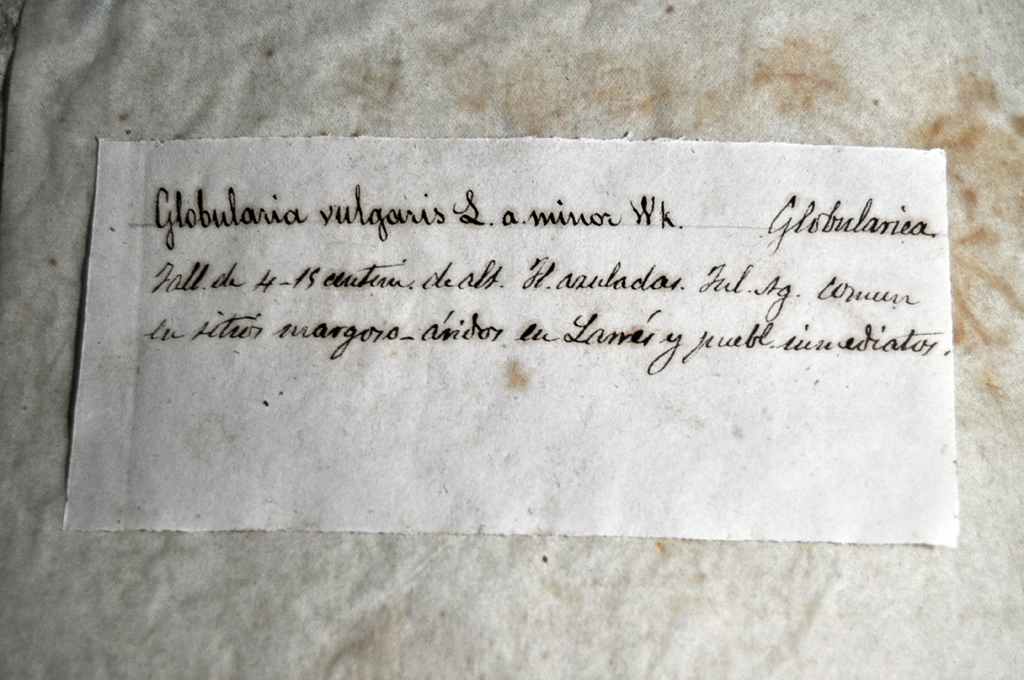 Globularia vulgaris L. a. minor Wk. Globulariea.
Tall. de 4-15 centim. de alt. Fl. azuladas. Jul. Ag. comun
en sitios margoso-áridos en Larrés y puebl. inmediatos.